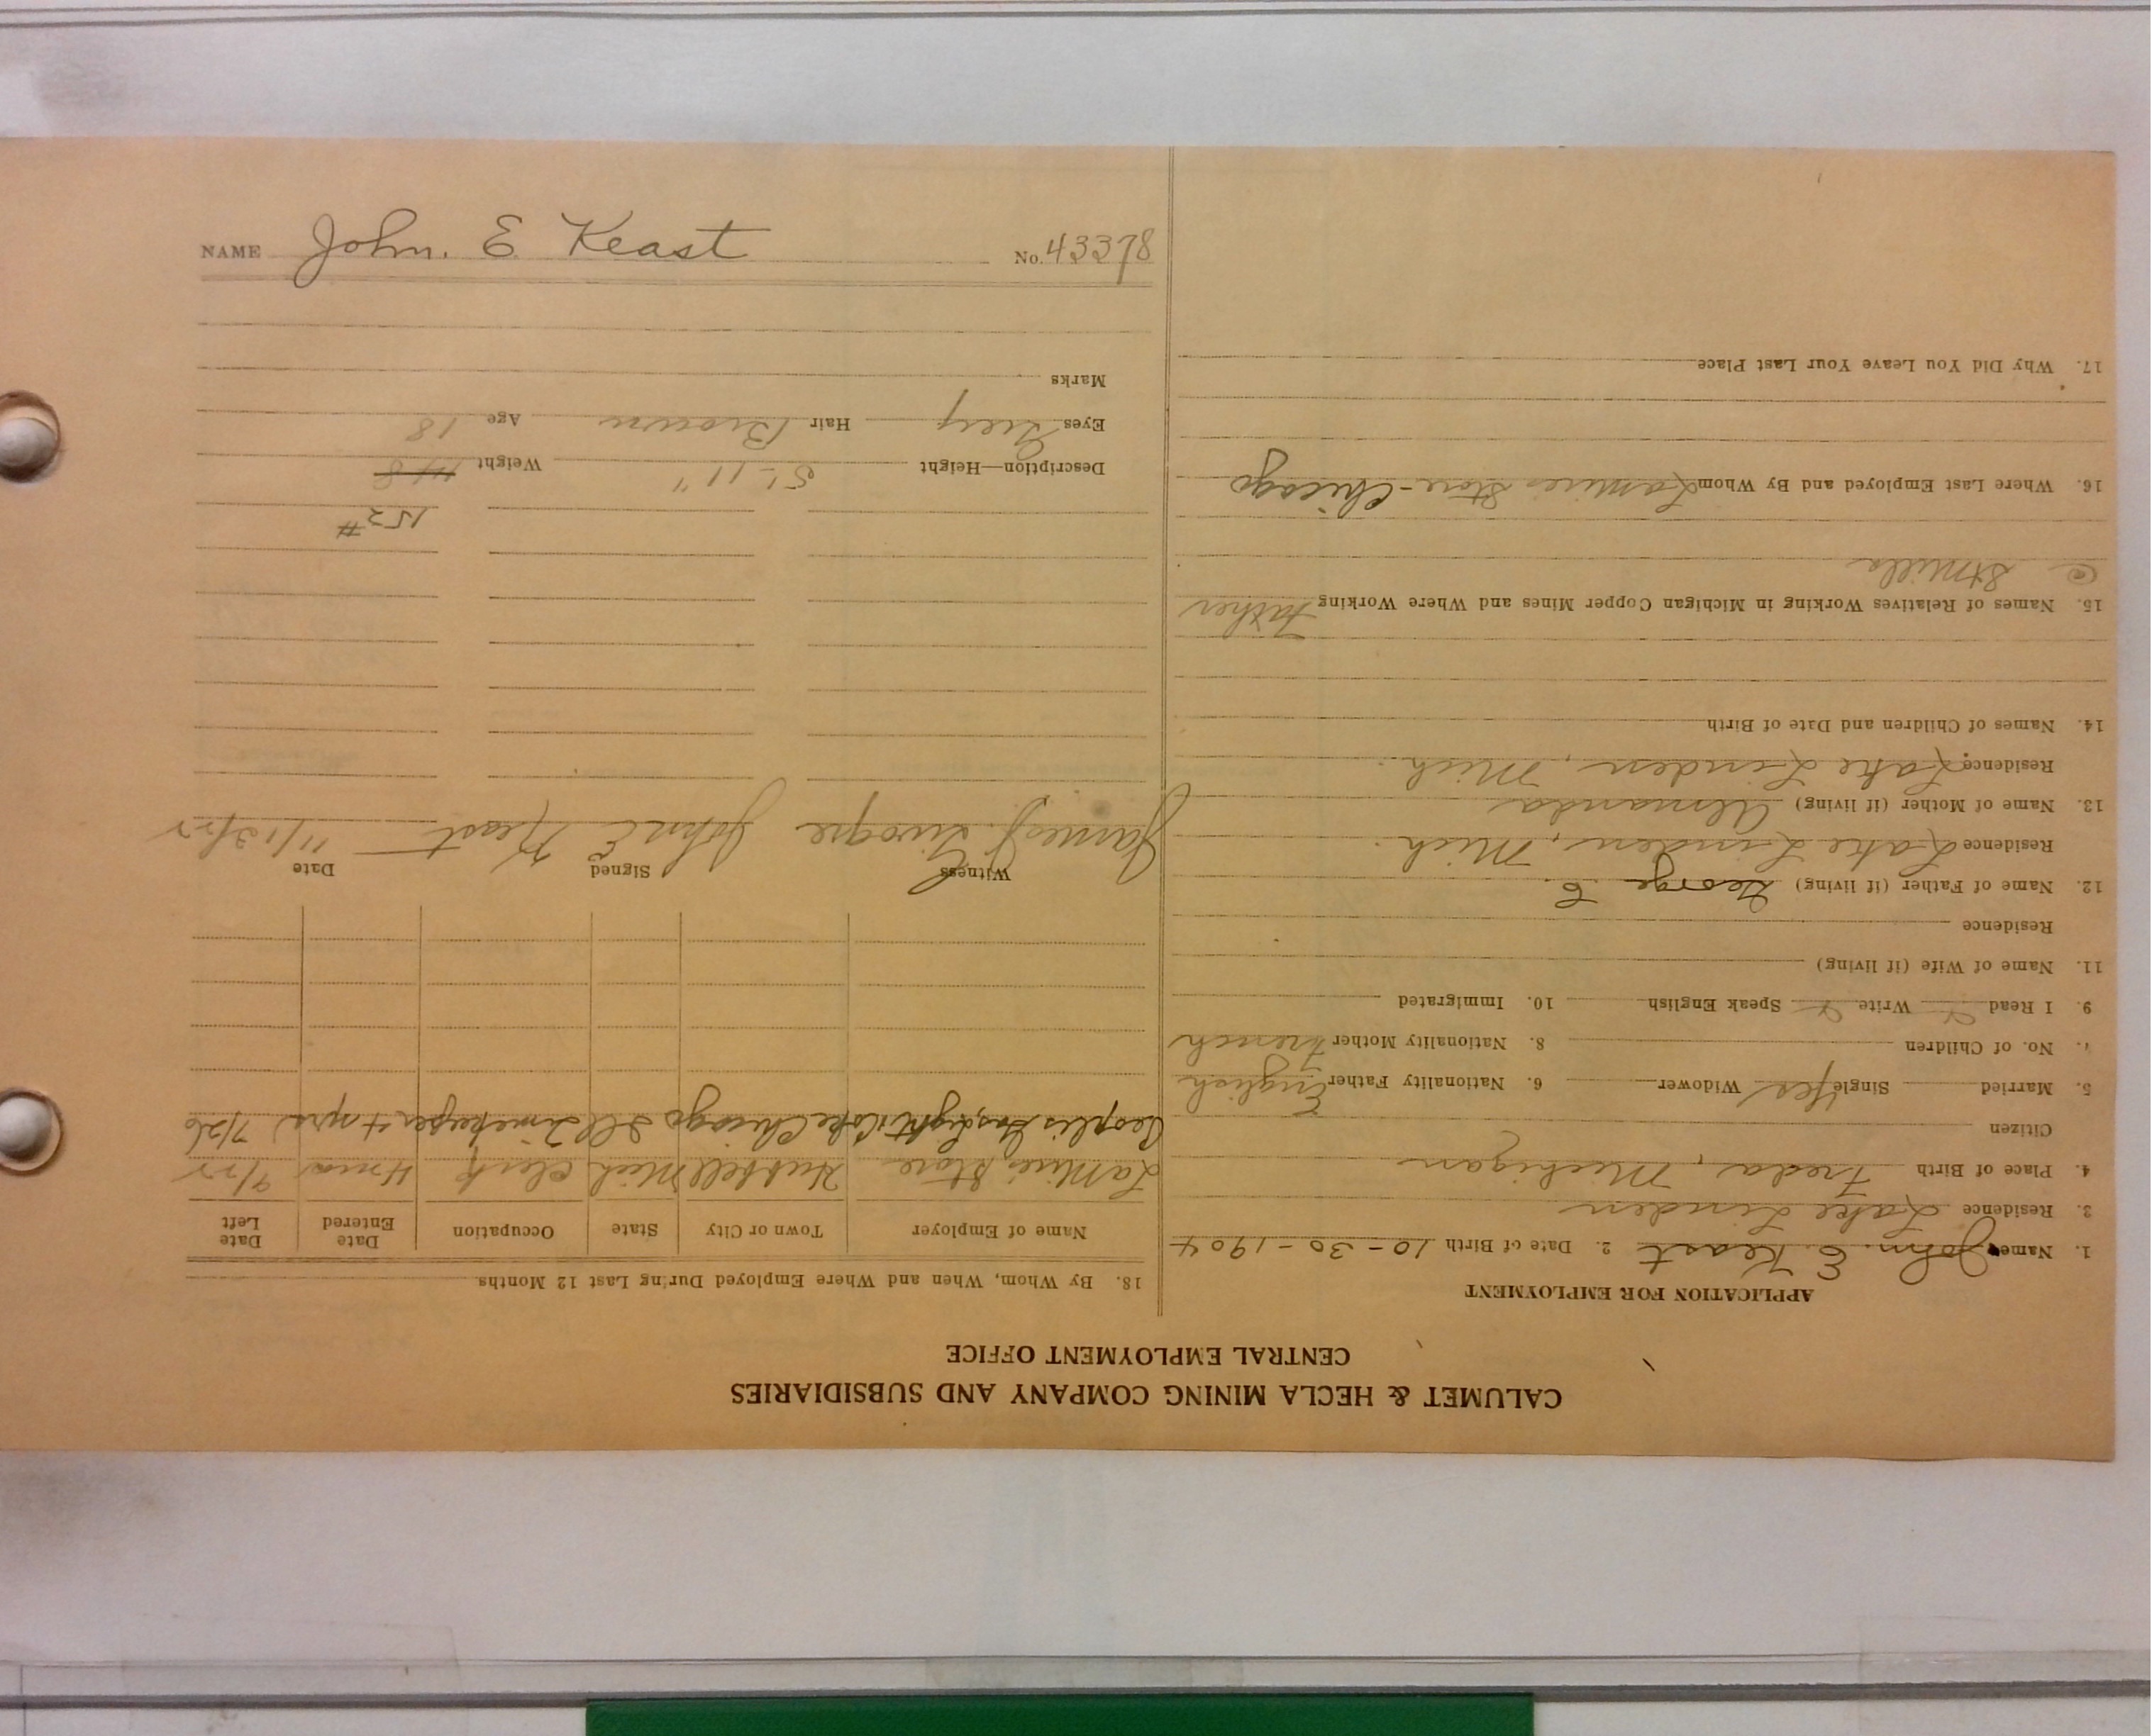 CALUMET & HECLA MINING COMPANY AND SUBSIDIARIES
CENTRAL EMPLOYMENT OFFICE
APPLICATION FOR EMPLOYMENT
1. Name John. E. Keast 2. Date of Birth 10-30-1904
3. Residence Lake Linden
4. Place of Birth Freda, Michigan
Citizen
5. Married Single Yes Widower 6. Nationality Father English
7. No. of Children 8. Nationality Mother French
9. I Read Write Speak English 10. Immigrated
11. Name of Wife (if living)
Residence
12. Name of Father (if living) George E.
Residence Lake Linden, Mich.
13. Name of Mother (if living) Almanda
Residence Lake Linden, Mich.
14. Names of Children and Date of Birth
15. Names of Relatives Working in Michigan Copper Mines and Where Working Father
@ St Mills
16. Where Last Employed and By Whom Store - Chicago
17. Why Did You Leave Your Last Place
18. By Whom, When and Where Employed During Last 12 Months
Name of Employer Town or City State Occupation Date Entered Date Left
Store Hubbell Mich Clerk 4 mos
Peoples Gas, Light & Coke Chicago Ill Timekeeper 4 yrs 7/26
Witness Signed Date
James J. John E Keast
152 #
Description—Height 5' 11" Weight 148
Eyes Grey Hair Brown Age 18
Marks
NAME John. E Keast No. 43378